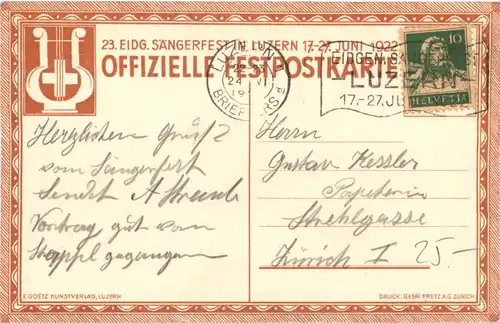 23. EIDG. SÄNGERFEST IN LUZERN 17-27. JUNI 1922
OFFIZIELLE FESTPOSTKARTE
LUZERN 1
24. VI
BRIEF
EIDGEN. SÄ
LUZERN
17.-27. JU
10
HELVETIA
Herzlichen Gruß
vom Sängerfest
Sendt A
Vortrag gut von
gegangen
Herrn
Gustav Kessler
Papeterie
Strehlgasse
Zürich I 25-
E. GOETZ KUNSTVERLAG, LUZERN
DRUCK: GEBR. FRETZ A.G. ZÜRICH